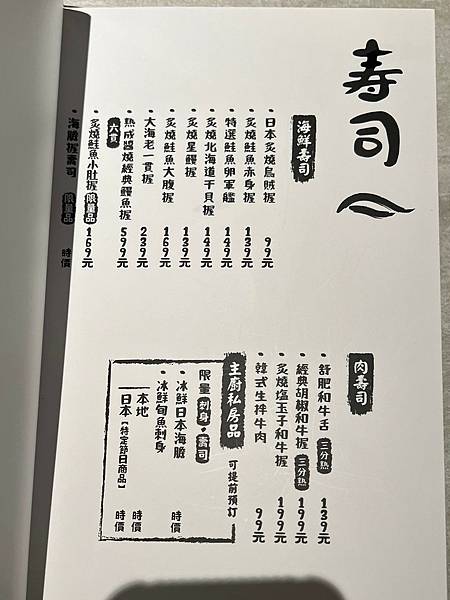 寿司
海鮮壽司
• 日本炙燒烏賊握 99元
• 炙燒鮭魚赤身握 139元
• 特選鮭魚卵軍艦 149元
• 炙燒北海道干貝握 149元
• 炙燒星鰻握 139元
• 炙燒鮭魚大腹握 169元
• 大海老一貫握 239元
• 熟成醬燒經典鰻魚握 六貫 599元
• 炙燒鮭魚小肚握 限量品 169元
• 海膽握壽司 限量品 時價
肉壽司
• 舒肥和牛舌 三分熟 139元
• 經典胡椒和牛握 三分熟 199元
• 炙燒塩玉子和牛握 199元
• 韓式生拌牛肉 99元
主廚私房品 可提前預訂
限量 刺身・壽司
• 冰鮮日本海膽 時價
• 冰鮮旬魚刺身
——本地 時價
——日本【特定節日商品】 時價